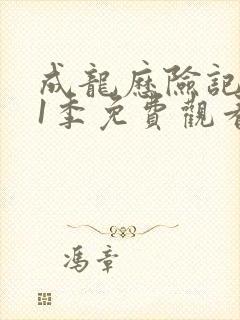 成龍歷險記
1季免費觀看
馮章